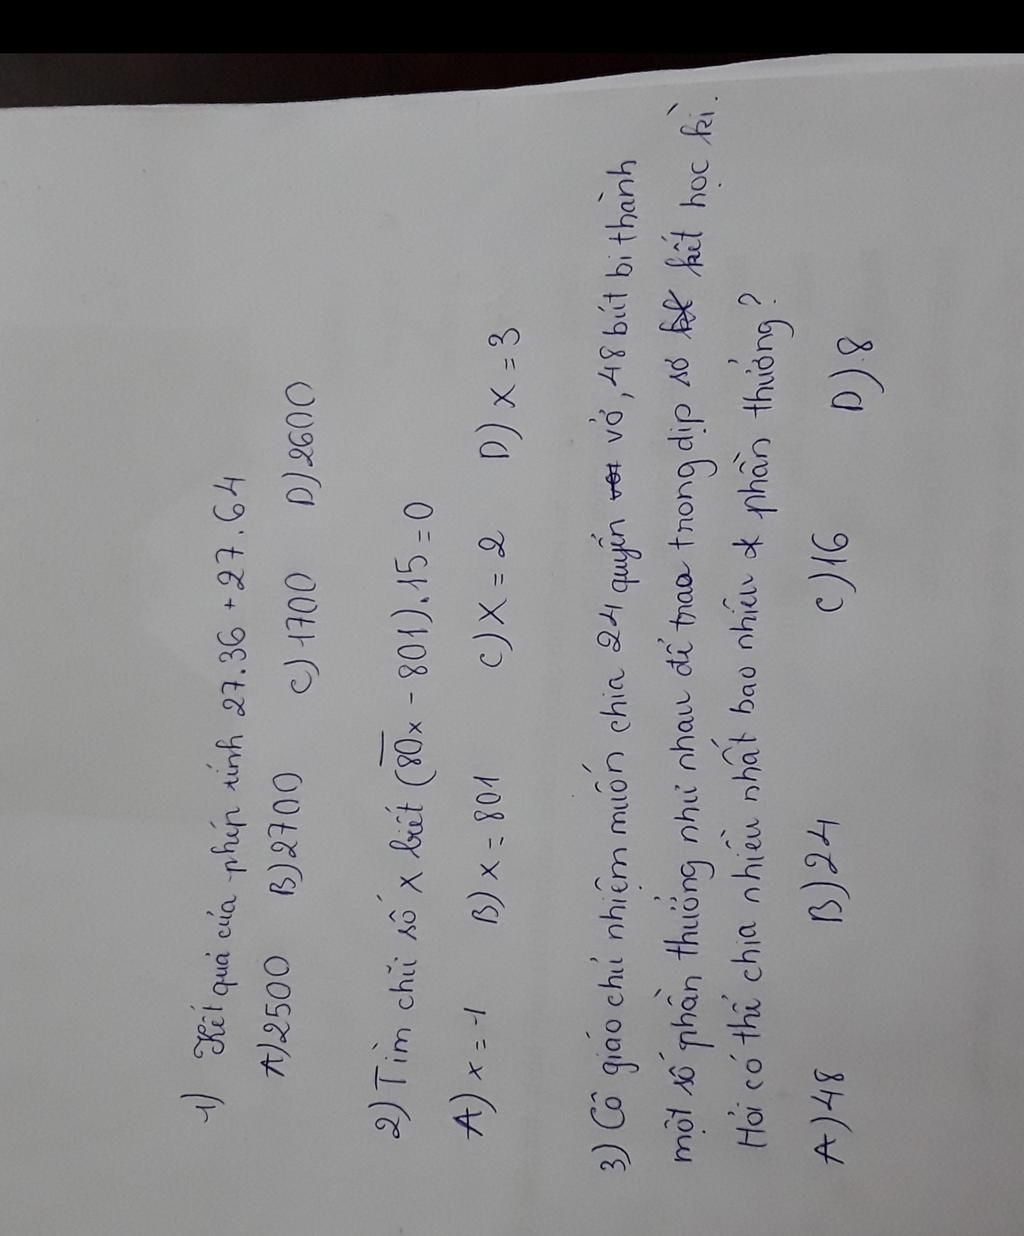 1) Kết quả của phép tính 27.36 + 27.64
A) 2500 B) 2700 C) 1700 D) 2600
2) Tìm chữ số x biết (80x - 801).15 = 0
A) x = 1 B) x = 801 C) x = 2 D) x = 3
3) Cô giáo chủ nhiệm muốn chia 24 quyển vở, 48 bút bi thành
một số phần thưởng như nhau để trao trong dịp sơ kết học kì.
Hỏi có thể chia nhiều nhất bao nhiêu phần thưởng?
A) 48 B) 24 C) 16 D) 8